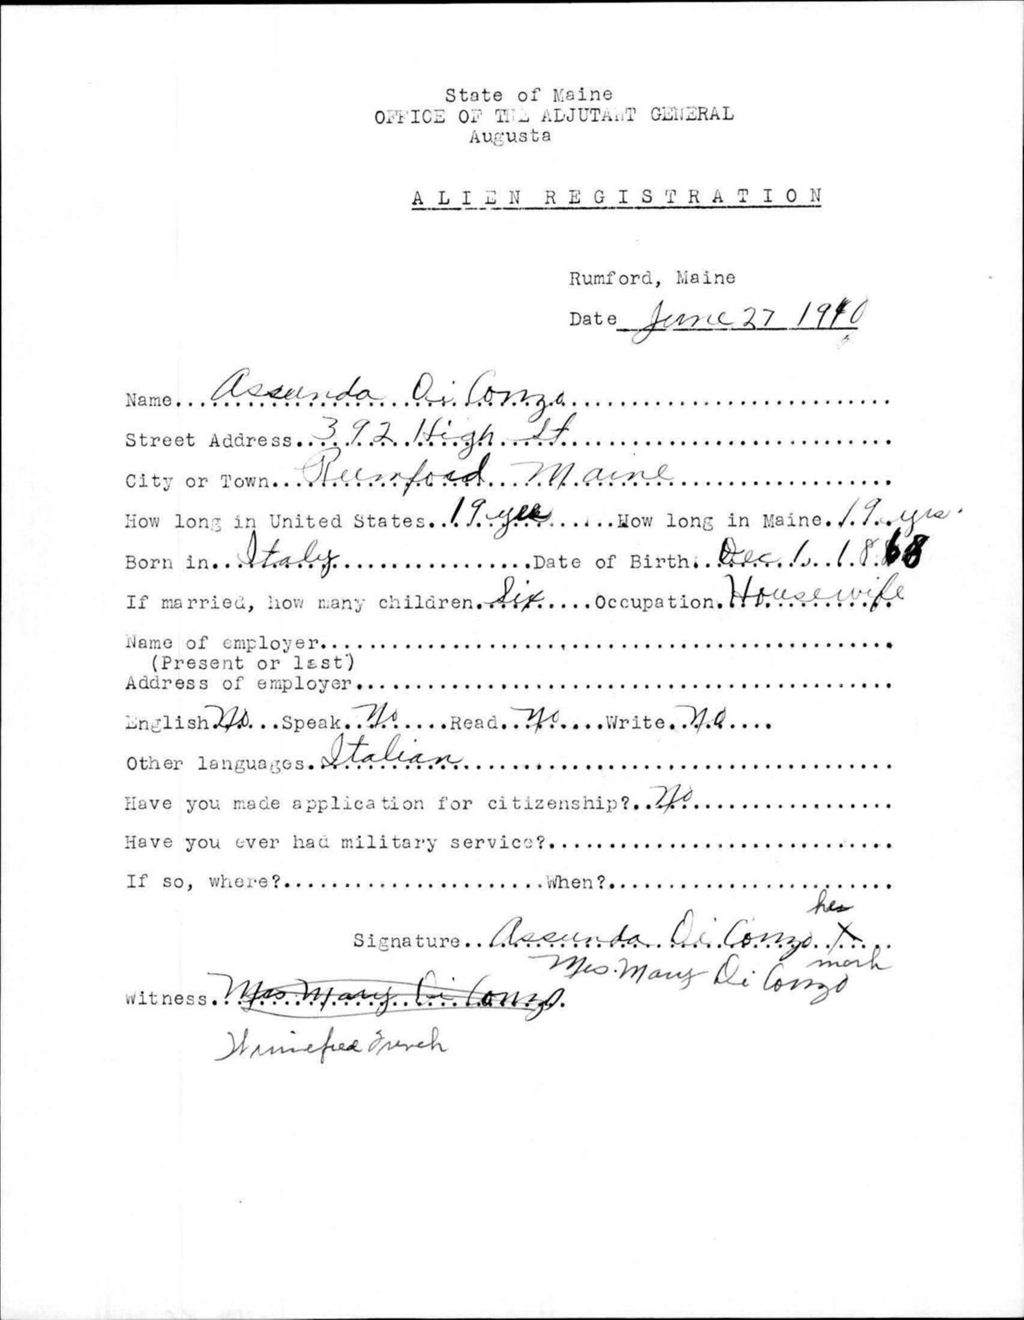 State of Maine
OFFICE OF THE ADJUTANT GENERAL
Augusta
ALIEN REGISTRATION
Rumford, Maine
Date June 27 1940
Name...Assunda Di Conzo
Street Address...392 High St
City or Town...Rumford Maine
How long in United States..19 yrs......How long in Maine.19 yrs.
Born in...Italy..................Date of Birth..Dec. 1, 1868
If married, how many children.Six.....Occupation.Housewife
Name of employer
(Present or last)
Address of employer
English No...Speak..No....Read..No....Write..No....
Other languages.Italian
Have you made application for citizenship?..No
Have you ever had military service?
If so, where?......................When?
her
Signature..Assunda Di Conzo X
mark
Mrs. Mary Di Conzo
Witness.Mrs Mary Di Conzo.
Winnefred French